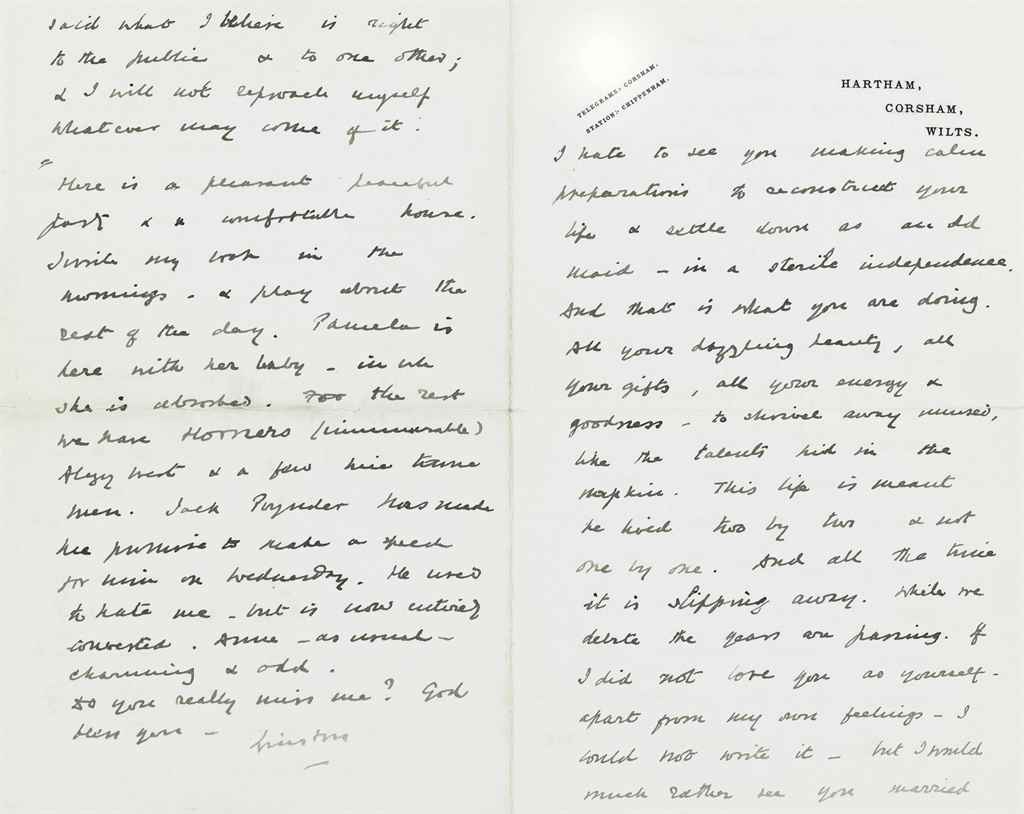 said what I believe is right
to the public & to one other;
& I will not reproach myself
whatever may come of it.
Here is a pleasant peaceful
party & a comfortable house.
I write my book in the
mornings - & play about the
rest of the day. Pamela is
here with her baby - in wh
she is absorbed. For the rest
we have Horners (innumerable)
Algy West & a few nice tame
men. Jack Poynder has made
me promise to make a speech
for him on Wednesday. He used
to hate me - but is now entirely
converted. Anne - as usual -
charming & odd.
Do you really miss me? God
bless you -
Winston
TELEGRAMS:- CORSHAM.
STATION:- CHIPPENHAM.
HARTHAM,
CORSHAM,
WILTS.
I hate to see you making calm
preparations to reconstruct your
life & settle down as an old
maid - in a sterile independence.
And that is what you are doing.
All your dazzling beauty, all
your gifts, all your energy &
goodness - to shrivel away unused,
like the talents hid in the
napkin. This life is meant
be lived two by two & not
one by one. And all the time
it is slipping away. While we
debate the years are passing. If
I did not love you as yourself -
apart from my own feelings - I
could not write it - but I would
much rather see you married